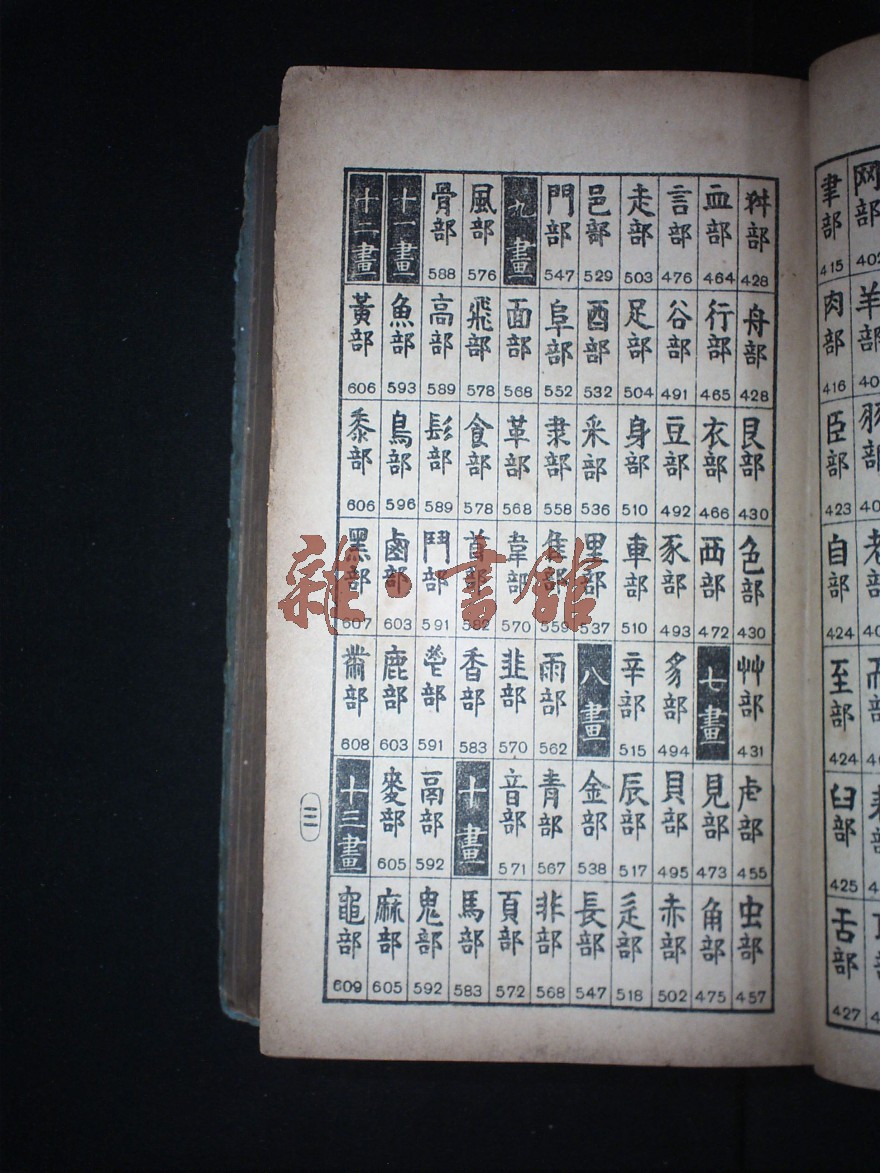 网部 402
羊部
老部
聿部 415
肉部 416
臣部 423
自部 424
至部 424
臼部 425
舌部 427
舛部 428
舟部 428
艮部 430
色部 430
艸部 431
虍部 455
虫部 457
血部 464
行部 465
衣部 466
襾部 472
七畫
見部 473
角部 475
言部 476
谷部 491
豆部 492
豕部 493
豸部 494
貝部 495
赤部 502
走部 503
足部 504
身部 510
車部 510
辛部 515
辰部 517
辵部 518
邑部 529
酉部 532
釆部 536
里部 537
八畫
金部 538
長部 547
門部 547
阜部 552
隶部 558
隹部 559
雨部 562
青部 567
非部 568
九畫
面部 568
革部 568
韋部 570
韭部 570
音部 571
頁部 572
風部 576
飛部 578
食部 578
首部 582
香部 583
十畫
馬部 583
骨部 588
高部 589
髟部 589
鬥部 591
鬯部 591
鬲部 592
鬼部 592
十一畫
魚部 593
鳥部 596
鹵部 603
鹿部 603
麥部 605
麻部 605
十二畫
黃部 606
黍部 606
黑部 607
黹部 608
十三畫
黽部 609
三
雜·書館